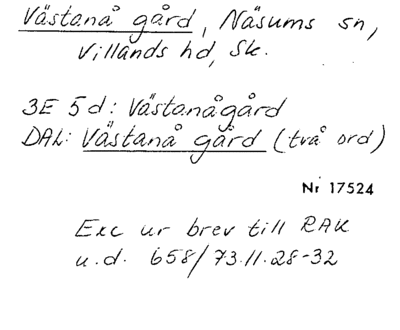 Västanå gård, Näsums sn,
Villands hd, Sk.
3E 5d: Västanågård
DAL: Västanå gård (två ord)
Nr 17524
Exc ur brev till RAK
u.d. 658/73.11.28-32